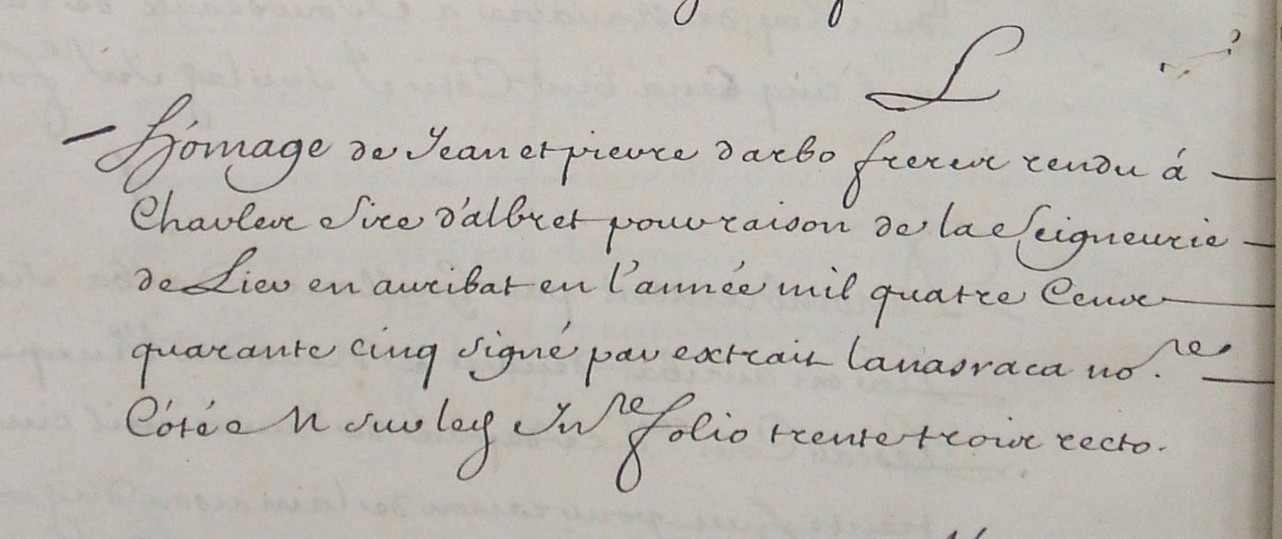 L
Hómage de Jean et pierre darbo freres rendu á
Charles Sire d'albret pour raison de la Seigneurie
de Lier en auribat en l'année mil quatre Cens
quarante cinq signé par extrait Lanasraca no.re
Cótée N sur led Inre folio trente trois recto.